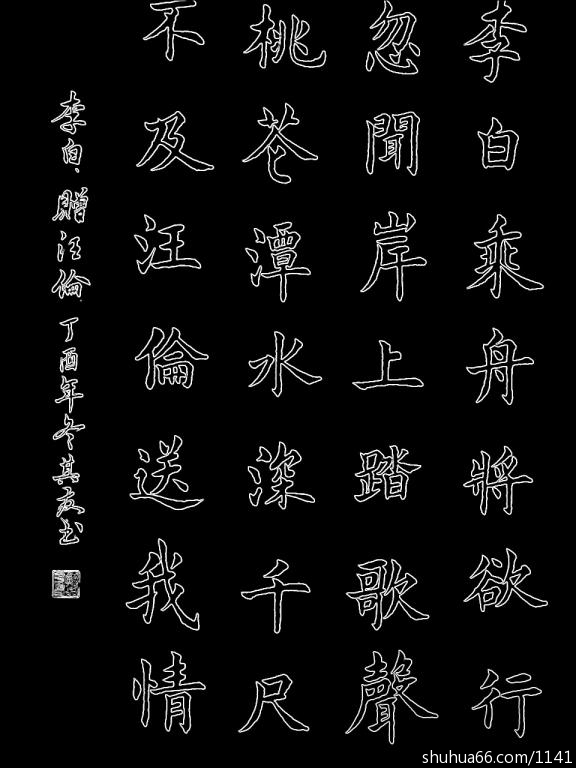 李白乘舟將欲行
忽聞岸上踏歌聲
桃花潭水深千尺
不及汪倫送我情
李白贈汪倫丁酉年冬其友書
shuhua66.com/1141